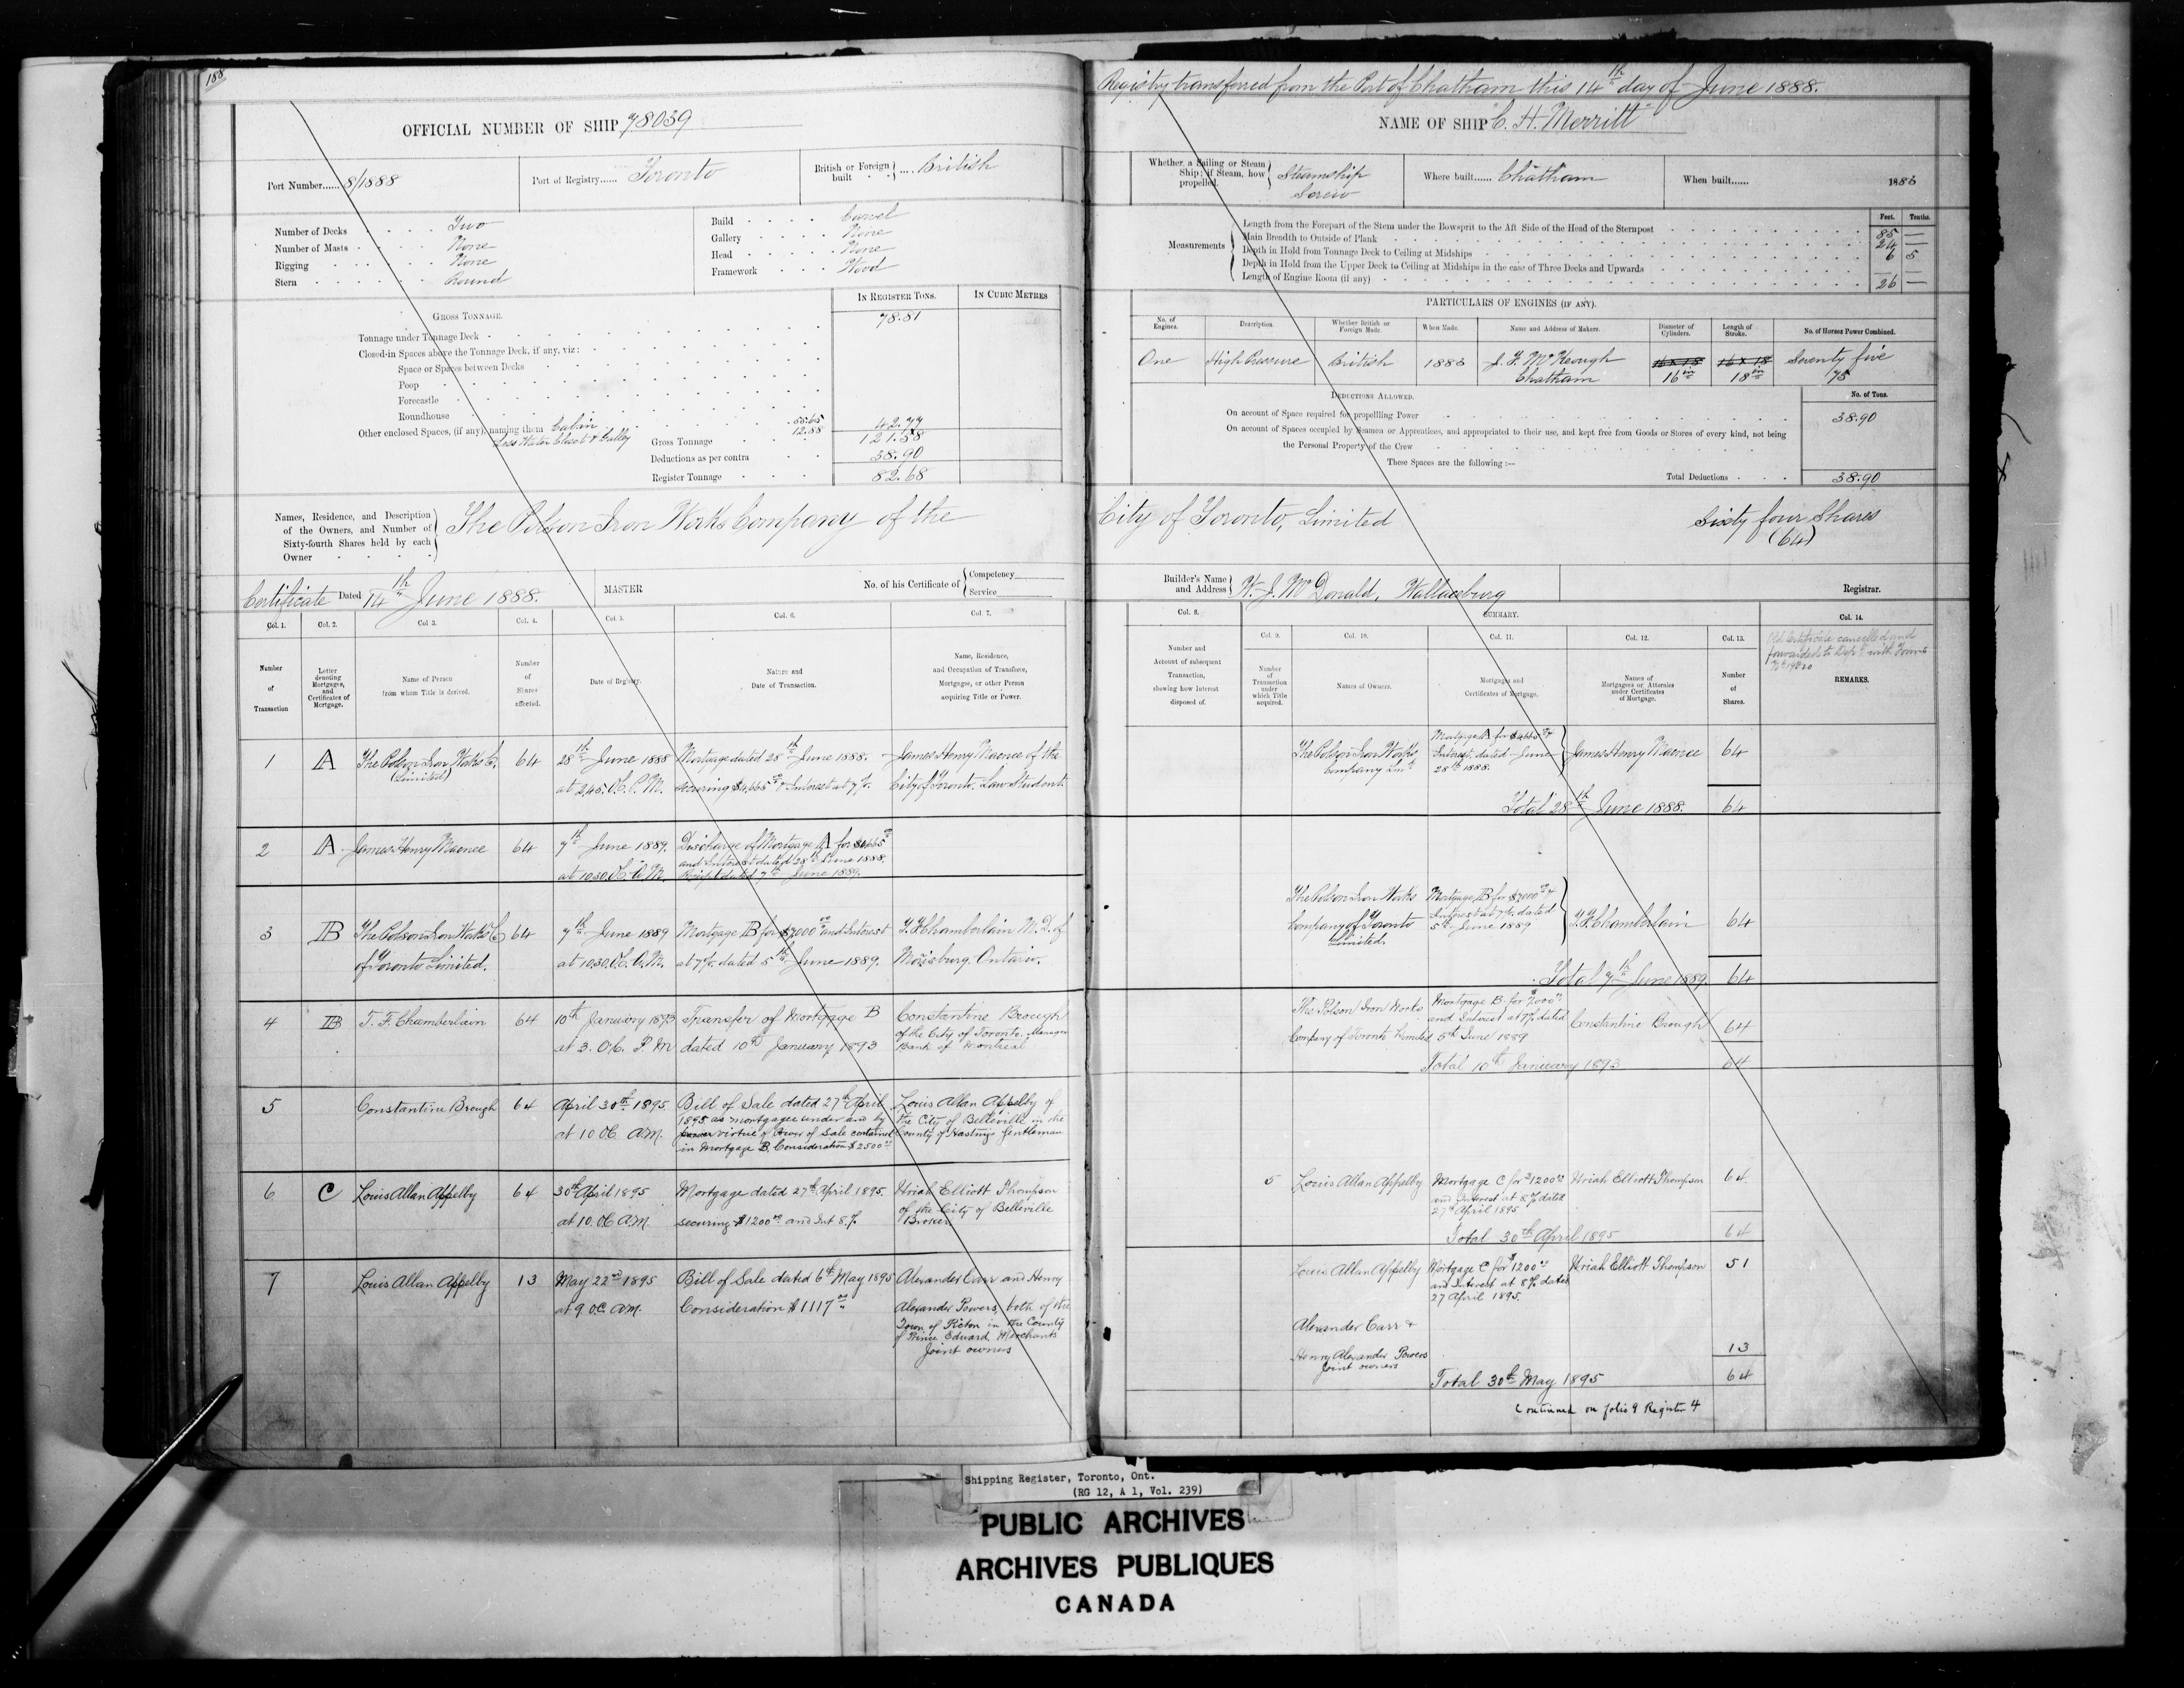 188
OFFICIAL NUMBER OF SHIP 78039
Port Number...... 8/1888
Port of Registry...... Toronto
British or Foreign built .... British
Number of Decks Two
Number of Masts None
Rigging None
Stern Round
Build Carvel
Gallery None
Head None
Framework Wood
GROSS TONNAGE.
IN REGISTER TONS.
IN CUBIC METRES
Tonnage under Tonnage Deck 78.81
Closed-in Spaces above the Tonnage Deck, if any, viz:
Space or Spaces between Decks
Poop
Forecastle
Roundhouse
Other enclosed Spaces, (if any), naming them Cabin 55.65
Less Water Closet & Galley 12.88 42.77
Gross Tonnage 121.58
Deductions as per contra 38.90
Register Tonnage 82.68
Names, Residence, and Description
of the Owners, and Number of
Sixty-fourth Shares held by each
Owner
The Polson Iron Works Company of the
Certificate Dated 14th June 1888.
MASTER
No. of his Certificate of
Competency
Service
Col. 1.
Col. 2.
Col 3.
Col. 4.
Col. 5.
Col. 6.
Col. 7.
Number of Transaction
Letter denoting Mortgages, and Certificates of Mortgage.
Name of Person from whom Title is derived.
Number of Shares affected.
Date of Registry.
Nature and Date of Transaction.
Name, Residence, and Occupation of Transferee, Mortgagee, or other Person acquiring Title or Power.
1 A The Polson Iron Works Co. 64 28th June 1888 Mortgage dated 28th June 1888. James Henry Macnee of the
(Limited) at 2.45. O.C. P.M. securing $4,665 & Interest at 7%. City of Toronto. Law Student
2 A James Henry Macnee 64 7th June 1889. Discharge of Mortgage A for $4665
and Interest dated 28th June 1888.
at 10.30. O.C. A.M. Receipt dated 7th June 1889.
3 B The Polson Iron Works Co 64 7th June 1889 Mortgage B for $7000 and Interest T. F. Chamberlain M.D. of
of Toronto Limited. at 10.30. O.C. A.M. at 7%. dated 5th June 1889. Morisburg. Ontario.
4 B T. F. Chamberlain 64 10th January 1893 Transfer of Mortgage B Constantine Brough
at 3. O.C. P.M dated 10th January 1893 of the City of Toronto. Manager
Bank of Montreal
5 Constantine Brough 64 April 30th 1895 Bill of Sale dated 27th April Louis Allan Appelby of
1895 as mortgagee under and by the City of Belleville in the
at 10 OC AM. virtue of Power of Sale contained County of Hastings Gentleman
in Mortgage B. Consideration $2500
6 C Louis Allan Appelby 64 30th April 1895 Mortgage dated 27th April 1895. Uriah Elliott Thompson
of the City of Belleville
at 10. OC AM. securing $1200 and Int 8% Broker
7 Louis Allan Appelby 13 May 22nd 1895 Bill of Sale dated 6th May 1895 Alexander Carr and Henry
at 9 OC AM. Consideration $1117 Alexander Powers, both of the
Town of Picton in the County
of Prince Edward Merchants
Joint owners
Registry transferred from the Port of Chatham this 14th day of June 1888.
NAME OF SHIP "C. H. Merritt"
Whether a Sailing or Steam Ship; if Steam, how propelled. Steamship Screw
Where built...... Chatham
When built...... 1883
Measurements
Feet. Tenths.
Length from the Forepart of the Stem under the Bowsprit to the Aft Side of the Head of the Sternpost 85 —
Main Breadth to Outside of Plank 24 —
Depth in Hold from Tonnage Deck to Ceiling at Midships 6 5
Depth in Hold from the Upper Deck to Ceiling at Midships in the case of Three Decks and Upwards
Length of Engine Room (if any) 26 —
PARTICULARS OF ENGINES (IF ANY).
No. of Engines.
Description.
Whether British or Foreign Made.
When Made.
Name and Address of Makers.
Diameter of Cylinders.
Length of Stroke.
No. of Horses Power Combined.
One High Pressure British 1883 J. F. McKeough 16 x 18 16 x 18 Seventy five
Chatham 16 in 18 in 75
DEDUCTIONS ALLOWED.
No. of Tons.
On account of Space required for propelling Power 38.90
On account of Spaces occupied by Seamen or Apprentices, and appropriated to their use, and kept free from Goods or Stores of every kind, not being
the Personal Property of the Crew
These Spaces are the following :—
Total Deductions 38.90
City of Toronto, Limited Sixty four Shares
(64)
Builder's Name and Address W. J. McDonald, Wallaceburg
Registrar.
Col. 8.
SUMMARY.
Col. 14.
Col. 9.
Col. 10.
Col. 11.
Col. 12.
Col. 13.
Old Certificate cancelled and
forwarded to Dept with Form
Number and Account of subsequent Transaction, showing how Interest disposed of.
Number of Transaction under which Title acquired.
Names of Owners.
Mortgages and Certificates of Mortgage.
Names of Mortgagees or Attornies under Certificates of Mortgage.
Number of Shares.
REMARKS.
The Polson Iron Works Mortgage A for $4665 & James Henry Macnee 64
Company Lmd Interest dated June
28th 1888.
Total 28th June 1888. 64
The Polson Iron Works Mortgage B for $7000 &
Company of Toronto Interest at 7%. dated T. F. Chamberlain 64
Limited. 5th June 1889
Total 7th June 1889. 64
The Polson Iron Works Mortgage B for $7000
and Interest at 7% dated Constantine Brough 64
Company of Toronto Limited 5th June 1889
Total 10th January 1893 64
5 Louis Allan Appelby Mortgage C for $1200 Uriah Elliott Thompson 64
and Interest at 8% dated
27th April 1895
Total 30th April 1895 64
Louis Allan Appelby Mortgage C for $1200 Uriah Elliott Thompson 51
and Interest at 8% dated
27 April 1895.
Alexander Carr &
Henry Alexander Powers 13
Joint owners
Total 30th May 1895 64
Continued on folio 9 Register 4
Shipping Register, Toronto, Ont.
(RG 12, A 1, Vol. 239)
PUBLIC ARCHIVES
ARCHIVES PUBLIQUES
CANADA